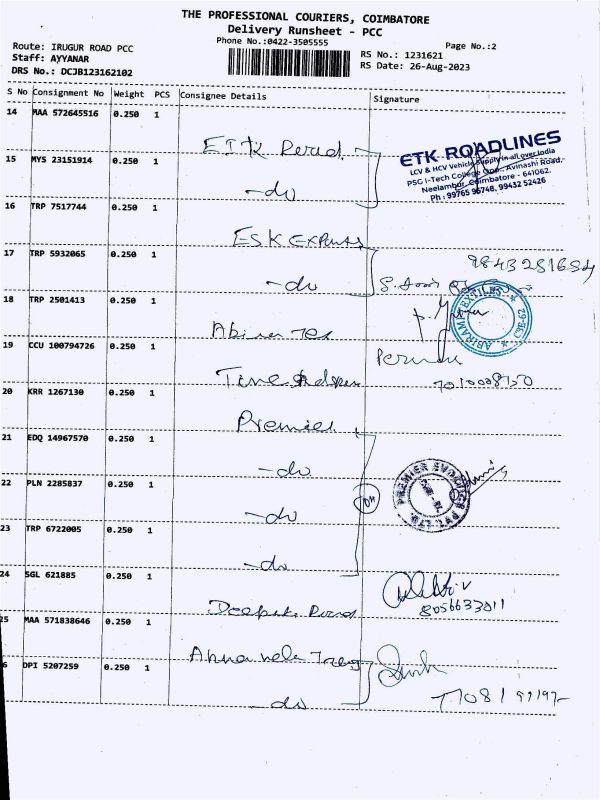 THE PROFESSIONAL COURIERS, COIMBATORE
Delivery Runsheet - PCC
Phone No.:0422-3505555
Page No.:2
Route: IRUGUR ROAD PCC
Staff: AYYANAR
DRS No.: DCJB123162102
RS No.: 1231621
RS Date: 26-Aug-2023
S No Consignment No Weight PCS Consignee Details Signature
14 MAA 572645516 0.250 1
ETK
15 MYS 23151914 0.250 1
-do
ETK ROADLINES
LCV & HCV Vehicle Supply in all over India
PSG I-Tech College Opp., Avinashi Road,
Neelambur, Coimbatore - 641062.
Ph : 99765 96748, 99432 52426
16 TRP 7517744 0.250 1
ESK Exports
17 TRP 5932065 0.250 1
-do
9843281654
18 TRP 2501413 0.250 1
ABIRAMI TEXTILES
CBE-62
19 CCU 100794726 0.250 1
Time
7010008750
20 KRR 1267130 0.250 1
Premier
21 EDQ 14967570 0.250 1
-do
22 PLN 2285837 0.250 1
-do
PREMIER EVOLVICS PVT. LTD.
23 TRP 6722005 0.250 1
-do
24 SGL 621885 0.250 1
8056633011
25 MAA 571838646 0.250 1
6 DPI 5207259 0.250 1
-do